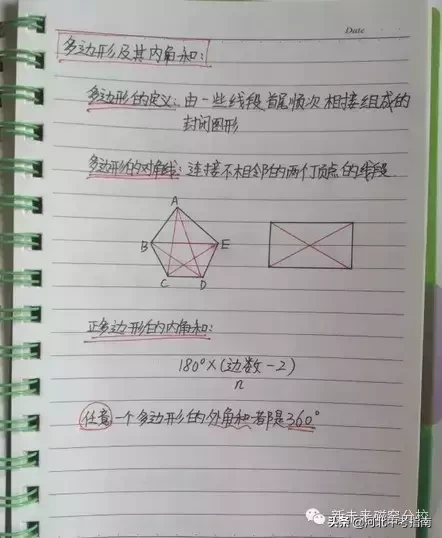 Date
多边形及其内角和:
多边形的定义: 由一些线段首尾顺次相接组成的
封闭图形
多边形的对角线: 连接不相邻的两个顶点的线段
A
B
E
C
D
正多边形的内角和:
180°×(边数-2)
n
任意一个多边形的外角和都是360°
新未来磁窑分校
头条@河北中考指南